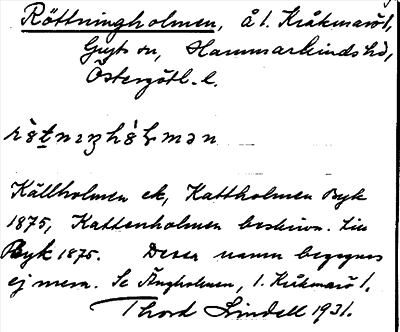 Röttningholmen, å l. Kråkmarö l,
Gryts sn, Hammarkinds hd,
Östergötl. l.
rö̀tnɪŋhɞ̀lmən
Källholmen ek, Kattholmen Byk
1875, Kattenholmen beskrivn. till
Byk 1875. Dessa namn begagnas
ej mera. Se Ängholmen, l. Kråkmarö l.
Thord Lindell 1931.